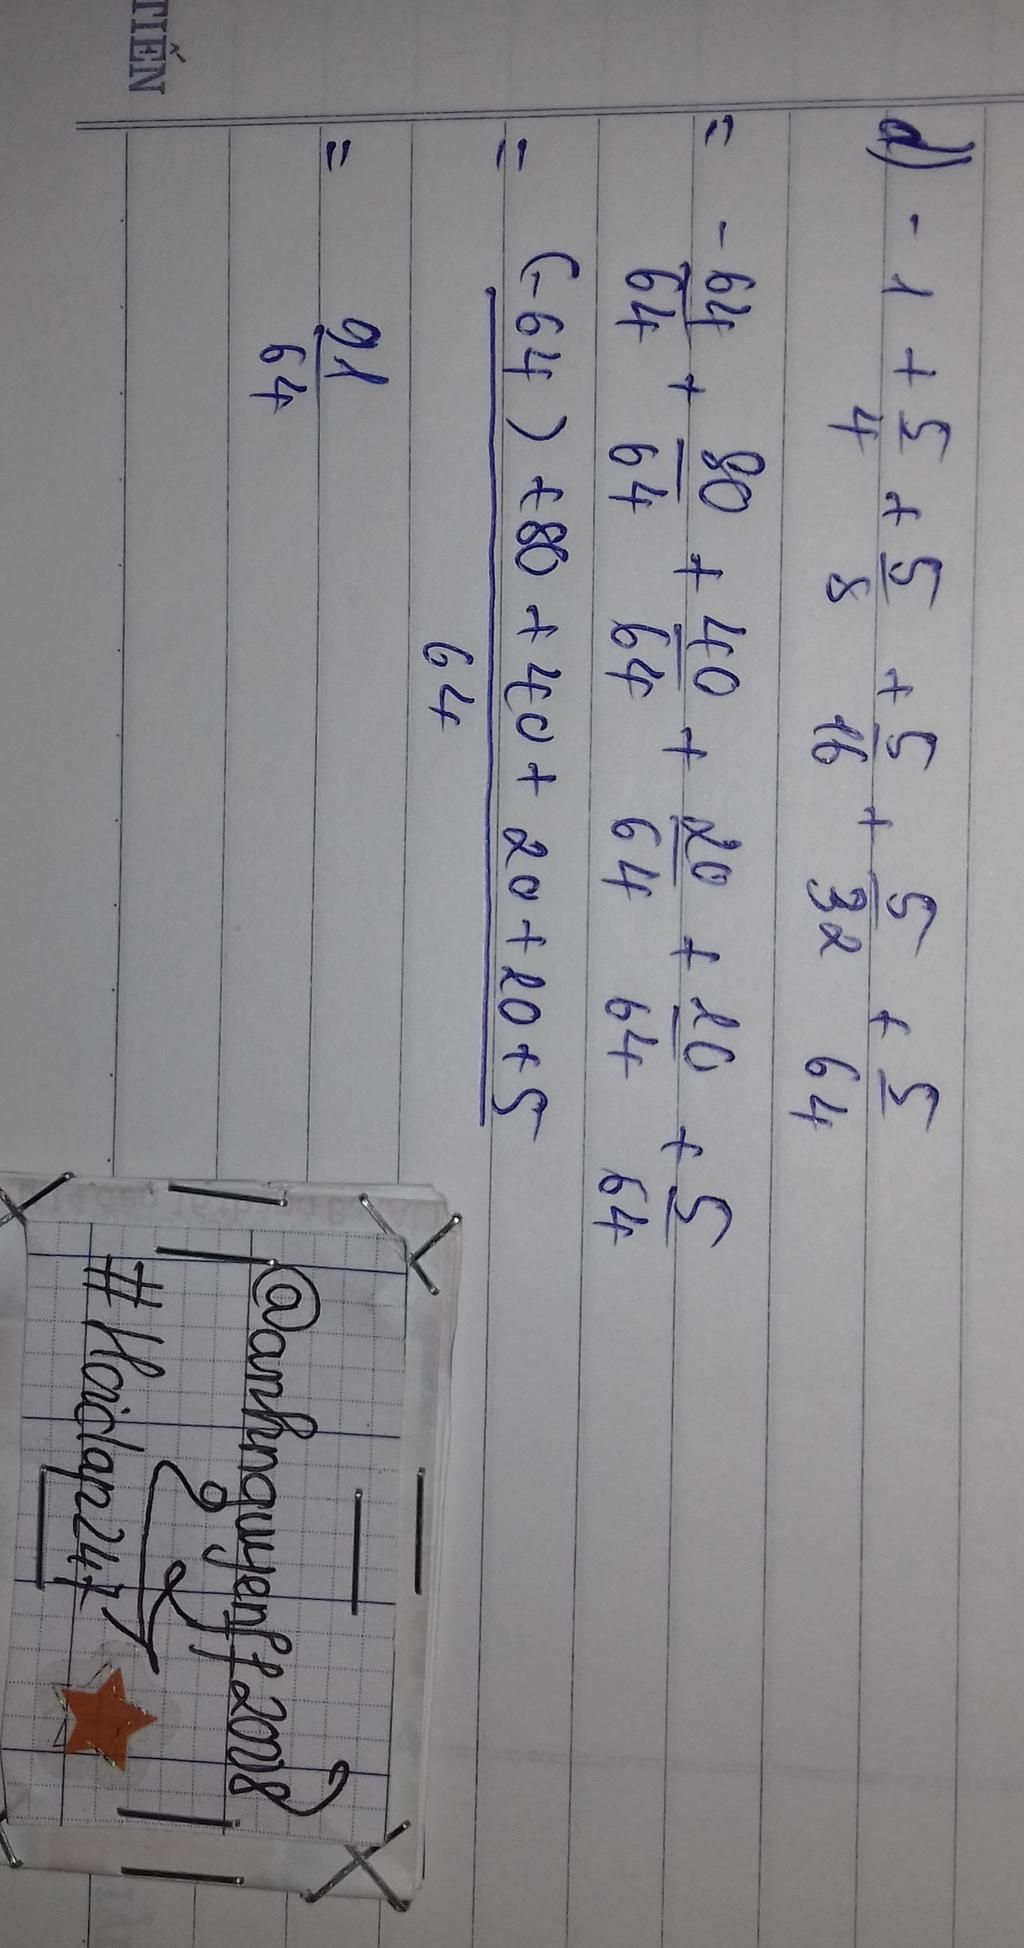 TIẾN
d) - 1 + 5/4 + 5/8 + 5/16 + 5/32 + 5/64
= - 64/64 + 80/64 + 40/64 + 20/64 + 10/64 + 5/64
= (-64) + 80 + 40 + 20 + 10 + 5 / 64
= 91/64
@anhnguyenff2008
#Hoidap247